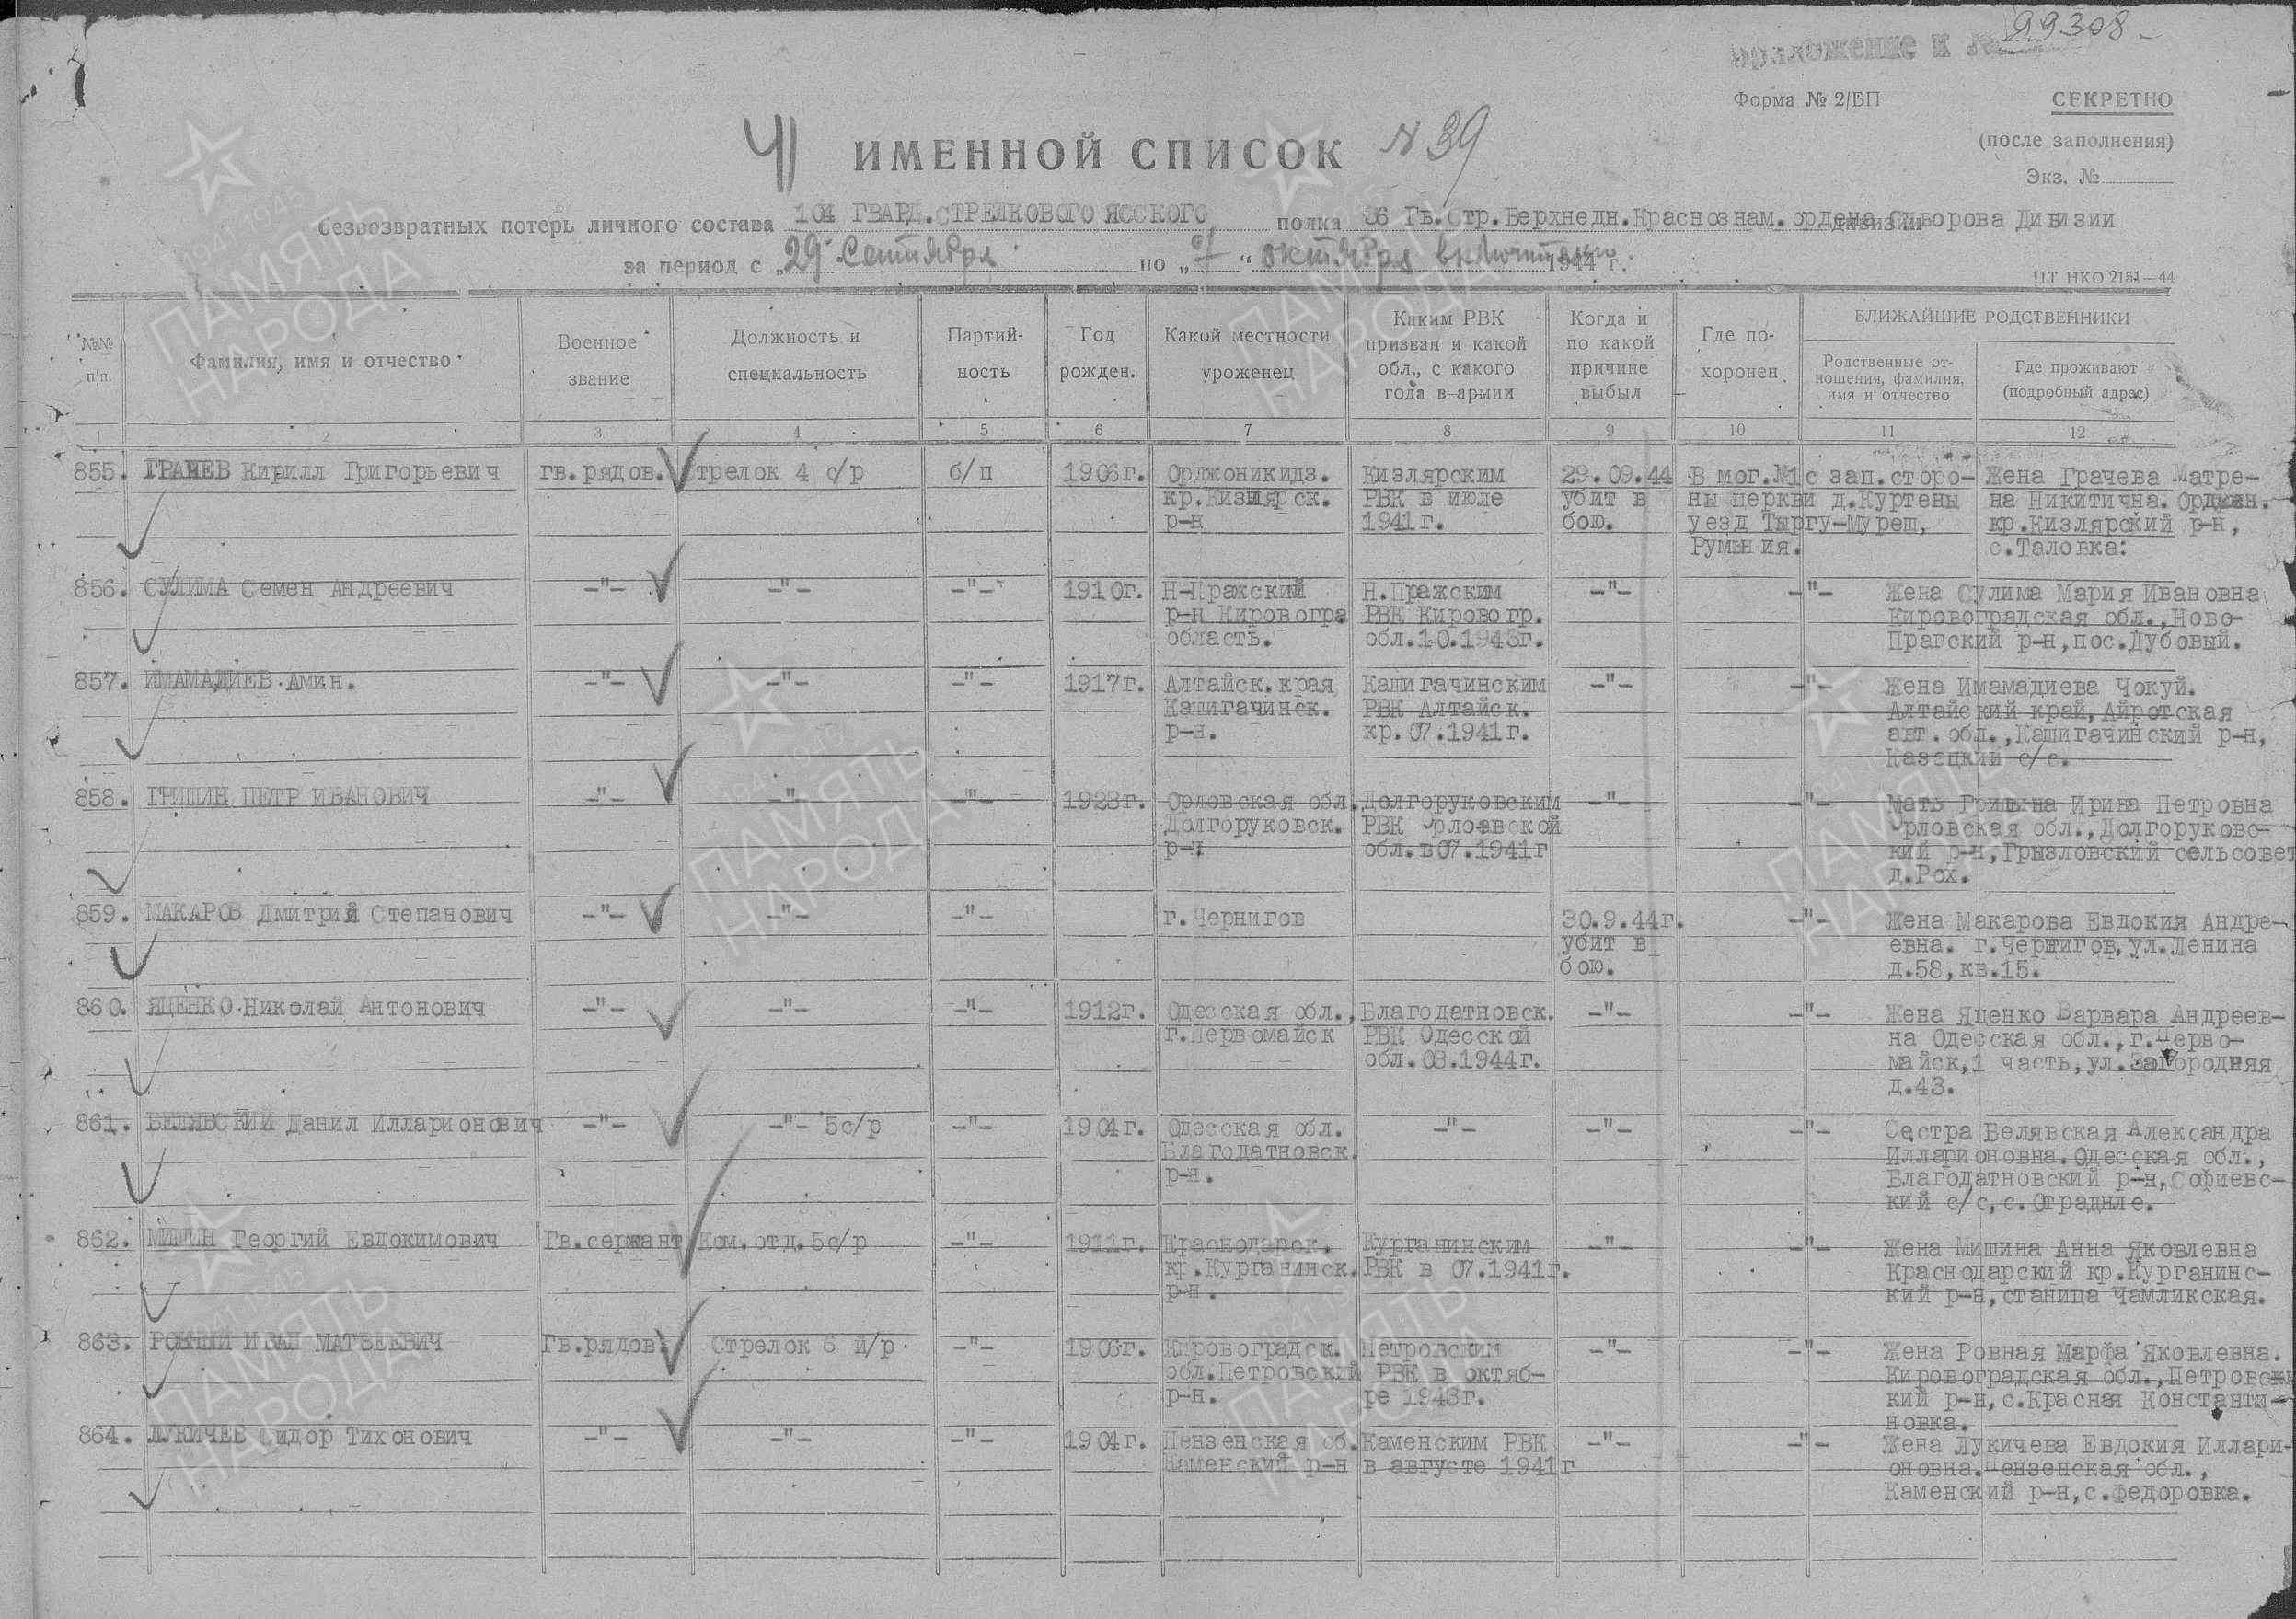 99308
Приложение к №
Форма № 2/БП
СЕКРЕТНО
(после заполнения)
Экз. №
41
ИМЕННОЙ СПИСОК N 39
безвозвратных потерь личного состава 104 ГВАРД.СТРЕЛКОВОГО ЯССКОГО полка 36 Гв.стр.Верхнедн.Краснознам.ордена Суворова Дивизии
за период с „29" Сентября по „7" октября включительно 1944 г.
ЦТ НКО 2151—44
№№ п/п.
Фамилия, имя и отчество
Военное звание
Должность и специальность
Партий-ность
Год рожден.
Какой местности уроженец
Каким РВК призван и какой обл., с какого года в армии
Когда и по какой причине выбыл
Где по-хоронен
БЛИЖАЙШИЕ РОДСТВЕННИКИ
Родственные от-ношения, фамилия, имя и отчество
Где проживают (подробный адрес)
1 2 3 4 5 6 7 8 9 10 11 12
855. ГРАЧЕВ Кирилл Григорьевич гв.рядов. стрелок 4 с/р б/п 1906г. Орджоникидз. Кизлярским 29.09.44 В мог.№1 с зап.сторо- Жена Грачева Матре-
кр.Кизлярск. РВК в июле убит в ны церкви д.Куртены на Никитична. Орджн.
р-н 1941г. бою. уезд Тыргу-Муреш, кр.Кизлярский р-н,
Румыния. с.Таловка:
856. СУЛИМА Семен Андреевич -"- -"- -"- 1910г. Н-Пражский Н.Пражским -"- -"- Жена Сулима Мария Ивановна
р-н Кировогра РВК Кировогр. Кировоградская обл.,Ново-
область. обл.10.1943г. Прагский р-н,пос.Дубовый.
857. ИМАМАДИЕВ Амин. -"- -"- -"- 1917г. Алтайск.края Кашигачинским -"- -"- Жена Имамадиева Чокуй.
Кашигачинск. РВК Алтайск. Алтайский край,Айротская
р-н. кр.07.1941г. авт.обл.,Кашигачинский р-н,
Казацкий с/с.
858. ГРИШИН ПЕТР ИВАНОВИЧ -"- -"- -"- 1923г. Орловская обл. Долгоруковским -"- -"- Мать Гришина Ирина Петровна
Долгоруковск. РВК Орловской Орловская обл.,Долгоруковс-
р-н обл.в 07.1941г кий р-н,Грызловский сельсовет
д.Рох.
859. МАКАРОВ Дмитрий Степанович -"- -"- -"- г.Чернигов 30.9.44г. -"- Жена Макарова Евдокия Андре-
убит в евна. г.Чернигов,ул.Ленина
бою. д.58,кв.15.
860. ЯЦЕНКО Николай Антонович -"- -"- -"- 1912г. Одесская обл., Благодатновск. -"- -"- Жена Яценко Варвара Андреев-
г.Первомайск РВК Одесской на Одесская обл.,г.Перво-
обл.03.1944г. майск,1 часть,ул.Загородняя
д.43.
861. БЕЛЯВСКИЙ Данил Илларионович -"- -"- 5с/р -"- 1904г. Одесская обл. -"- -"- -"- Сестра Белявская Александра
Благодатновск. Илларионовна.Одесская обл.,
р-н. Благодатновский р-н,Софиевс-
кий с/с,с.Отраднле.
862. МИШИН Георгий Евдокимович Гв.сержант Ком.отд.5с/р -"- 1911г. Краснодарск. Курганинским -"- -"- Жена Мишина Анна Яковлевна
кр.Курганинск. РВК в 07.1941г. Краснодарский кр.Курганинс-
р-н. кий р-н,станица Чамликская.
863. РОВНЫЙ ИВАН МАТВЕЕВИЧ Гв.рядов. Стрелок 6 й/р -"- 1906г. Кировоградск. Петровским -"- -"- Жена Ровная Марфа Яковлевна.
обл.Петровский РВК в октяб- Кировоградская обл.,Петровс-
р-н. ре 1943г. кий р-н,с.Красная Константи-
новка.
864. ЛУКИЧЕВ Сидор Тихонович -"- -"- -"- 1904г. Пензенская об. Каменским РВК -"- -"- Жена Лукичева Евдокия Иллари-
Каменский р-н в августе 1941г оновна.Пензенская обл.,
Каменский р-н,с.Федоровка.